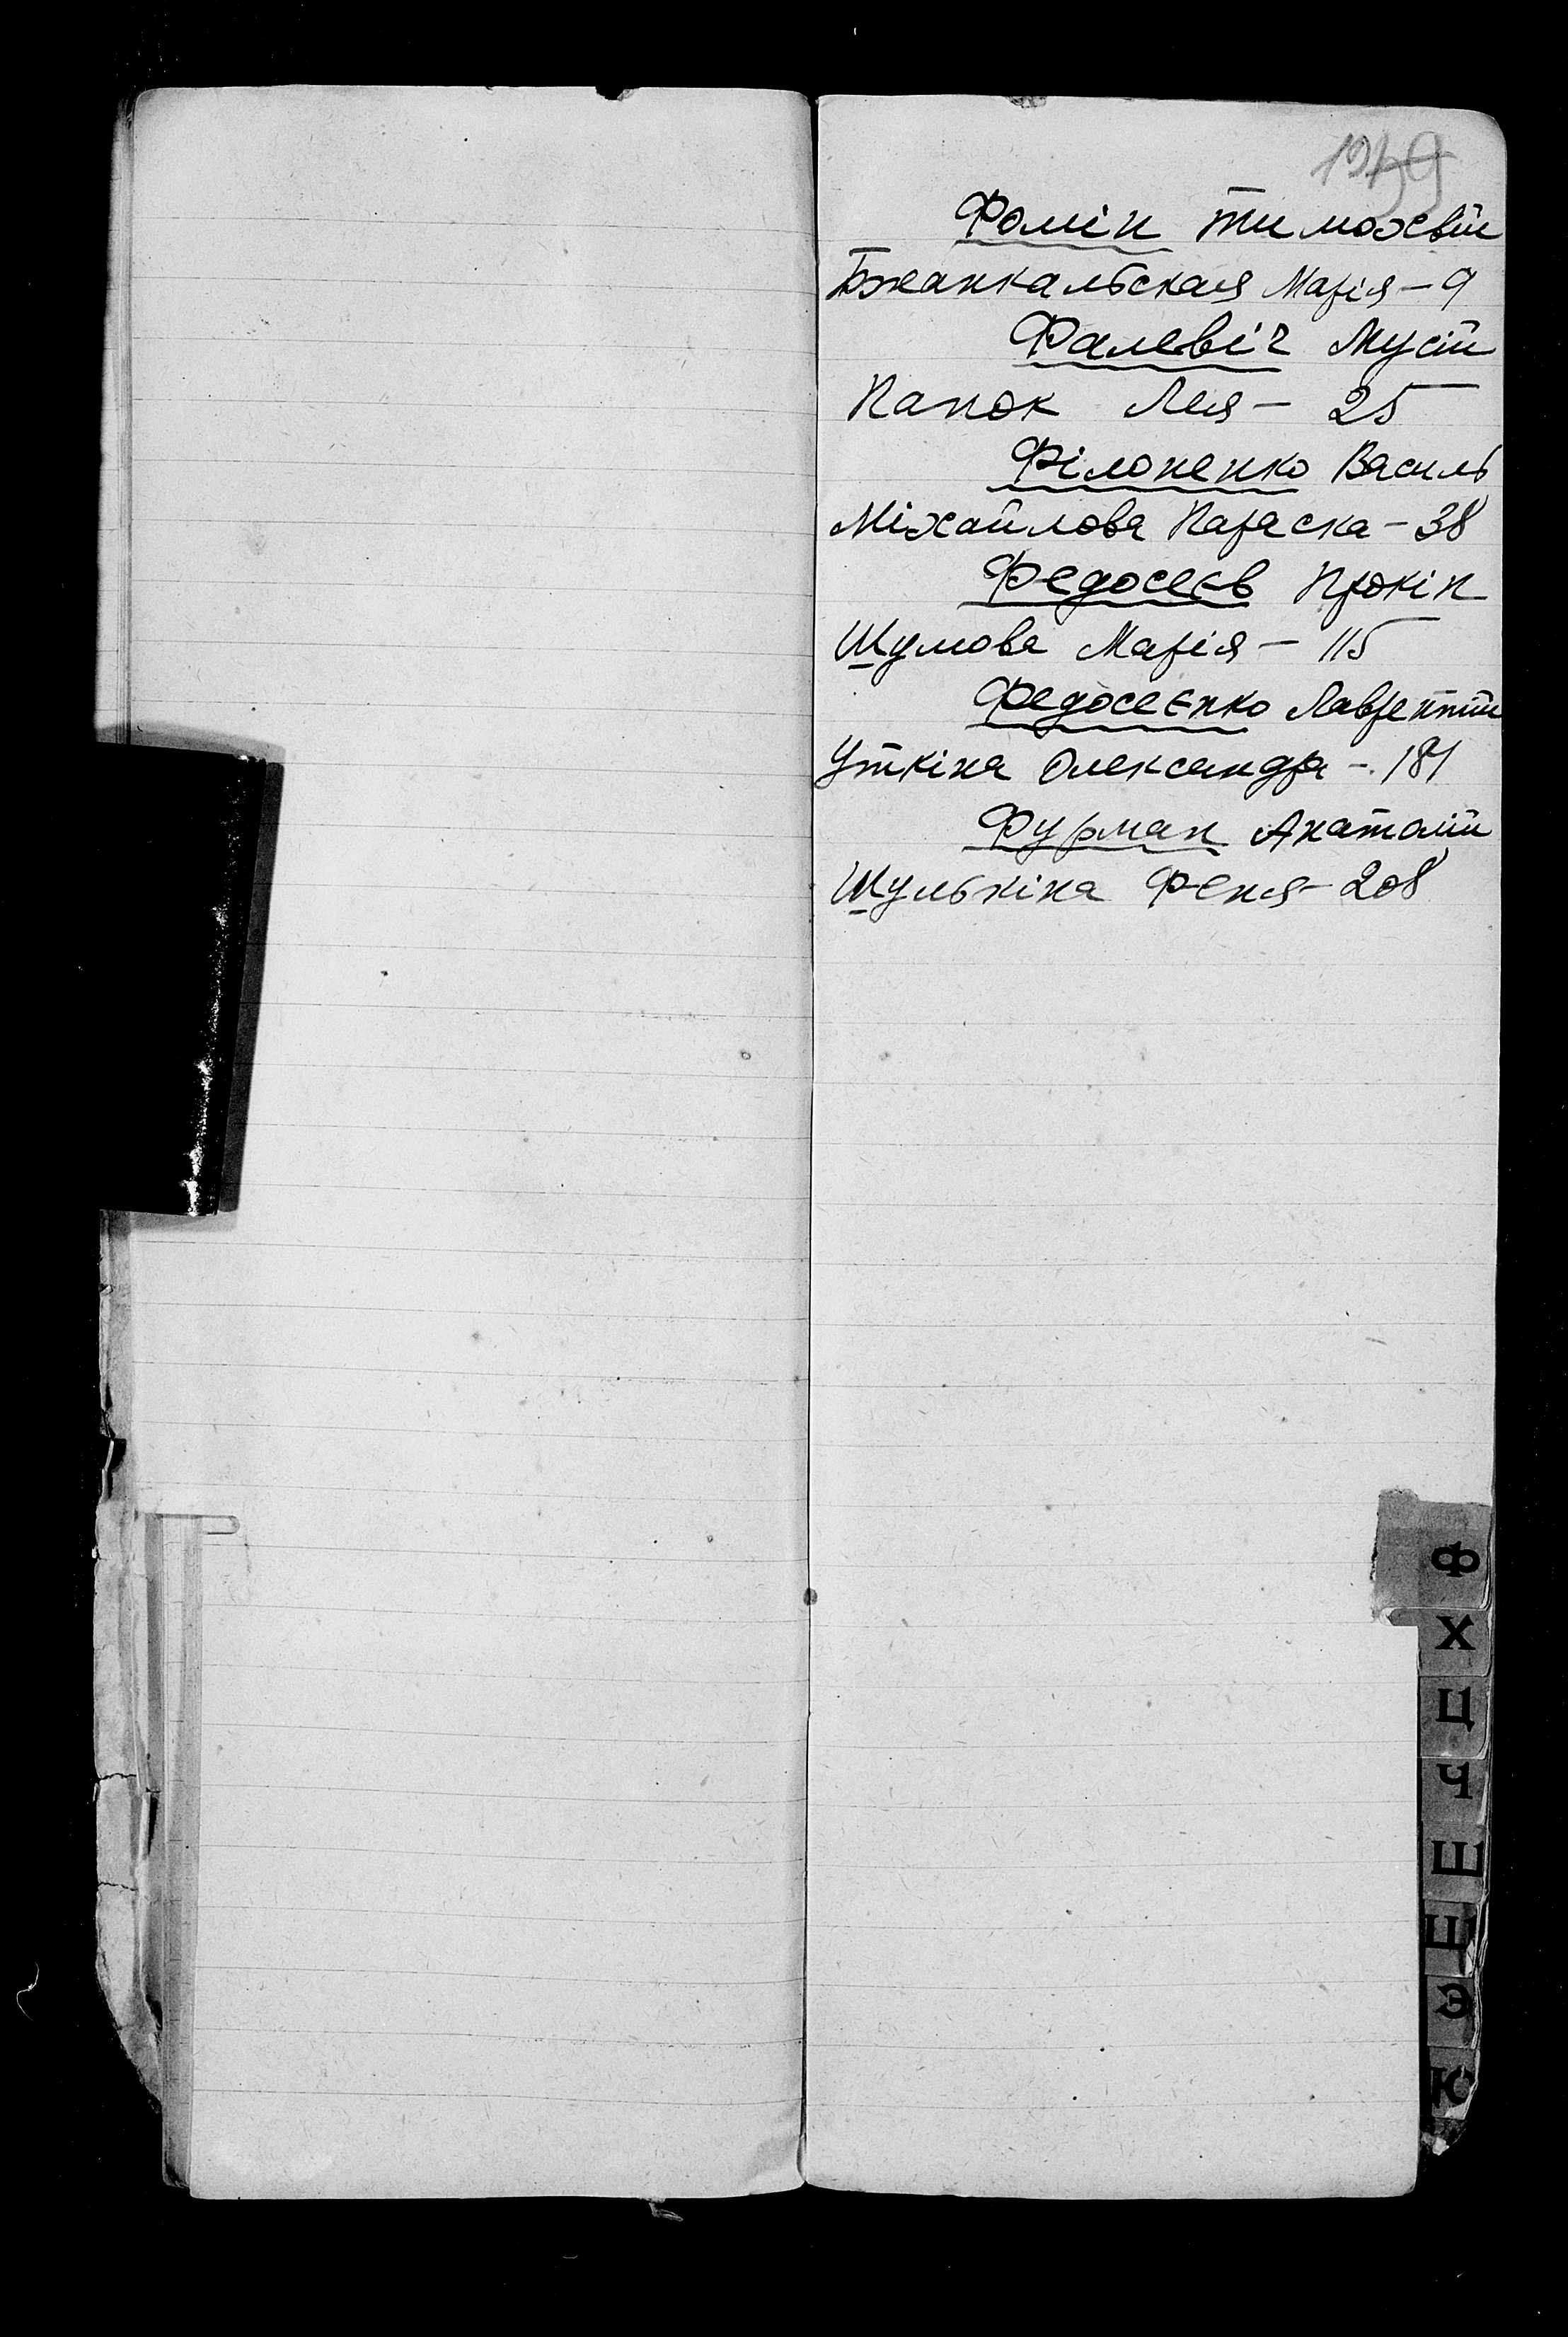 Фомін Тимохвій
Бжанкальбская Марія – 9
Фалевіч Мусій
Папок Лея – 25
Філоненко Василь
Міхайлова Параска – 38
Федосеєв Прокіп
Шумова Марія – 115
Федосеєнко Лаврентій
Уткіна Олександра – 181
Фурман Анатолій
Шулькіна Феня – 208
Ф
Х
Ц
Ч
Ш
Щ
Э
Ю